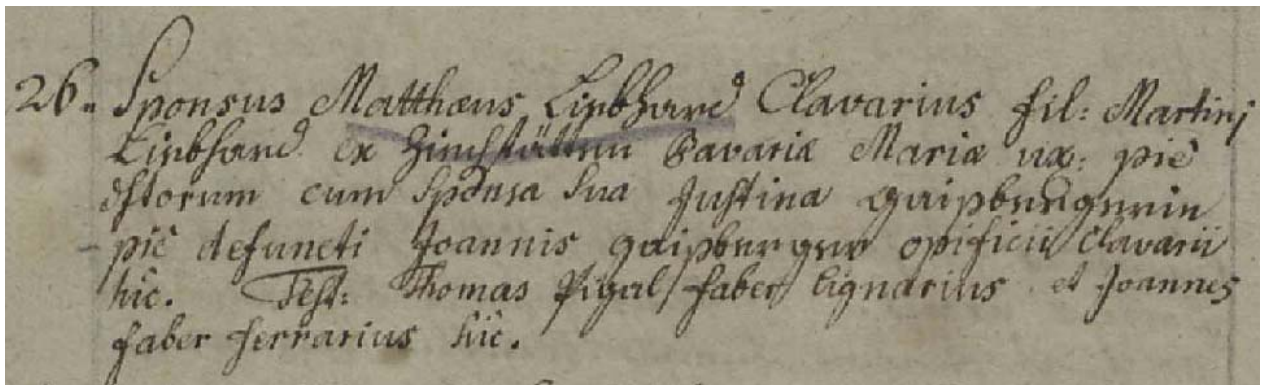 26. Sponsus Matthæus Liebhard Clavarius fil: Martini
Liebhard ex Bavariæ Mariæ ux: piè
dftorum cum Sponsa Sua Justina Gaisbergerin
piè defuncti Joannis Gaisberger opificii Clavarii
hic. Test: Thomas Pigal faber lignarius et Joannes
faber ferrarius hic.